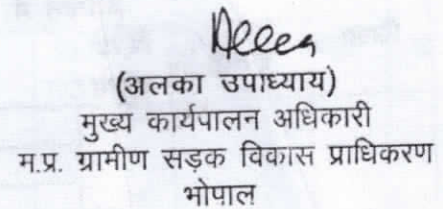 (अलका उपाध्याय)
मुख्य कार्यपालन अधिकारी
म.प्र. ग्रामीण सड़क विकास प्राधिकरण
भोपाल